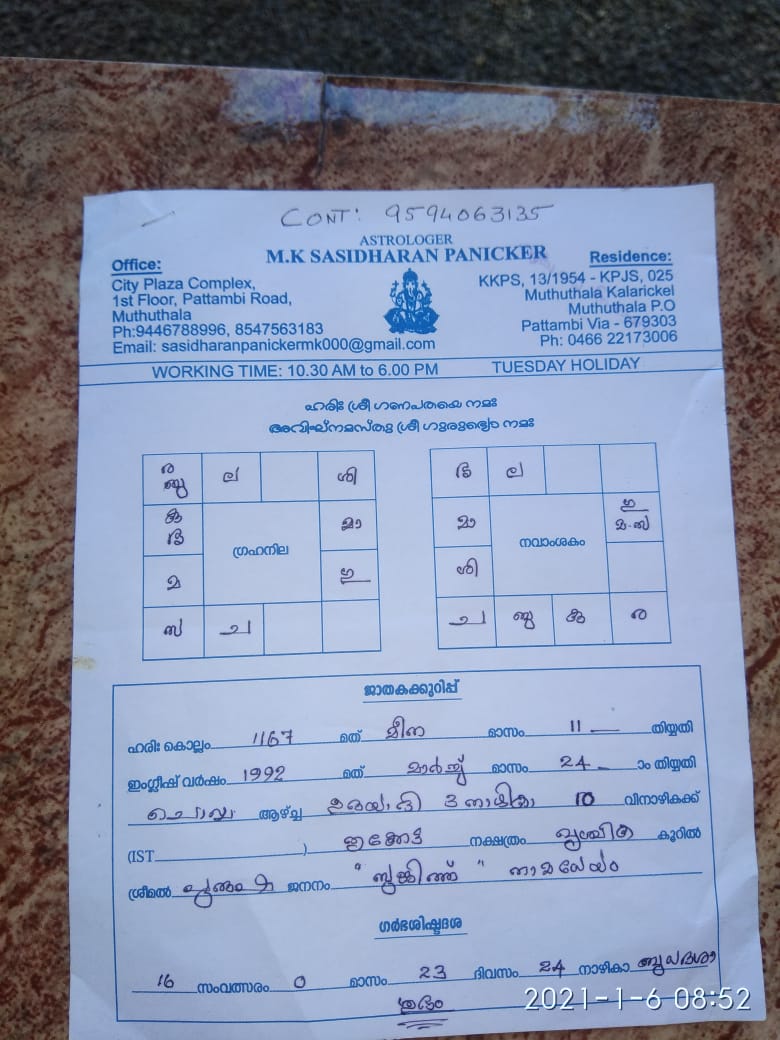 CONT: 9594063135
ASTROLOGER
M.K SASIDHARAN PANICKER
Office:
City Plaza Complex,
1st Floor, Pattambi Road,
Muthuthala
Ph:9446788996, 8547563183
Email: sasidharanpanickermk000@gmail.com
Residence:
KKPS, 13/1954 - KPJS, 025
Muthuthala Kalarickel
Muthuthala P.O
Pattambi Via - 679303
Ph: 0466 22173006
WORKING TIME: 10.30 AM to 6.00 PM TUESDAY HOLIDAY
ഹരിഃ ശ്രീ ഗണപതയെ നമഃ
അവിഘ്നമസ്തു ശ്രീ ഗുരുഭ്യൊ നമഃ
ര ല ശി
ബു
മാ
ഗ്രഹനില
മ
സ ച
ല
മാ
മ-സ
നവാംശകം
ശി
ച ബു ര
ജാതകക്കുറിപ്പ്
ഹരിഃ കൊല്ലം 1167 മത് മീന മാസം 11 തിയ്യതി
ഇംഗ്ലീഷ് വർഷം 1992 മത് മാർച്ച് മാസം 24 ാം തിയ്യതി
ചൊവ്വ ആഴ്ച്ച ഉദയാദി 3 നാഴിക 10 വിനാഴികക്ക്
(IST ) തൃക്കേട്ട നക്ഷത്രം വൃശ്ചിക കൂറിൽ
ശ്രീമൽ ജനനം നാമധേയം
ഗർഭശിഷ്ടദശ
16 സംവത്സരം 0 മാസം 23 ദിവസം 24 നാഴികാ ബുധദശാ
ശുഭം
2021-1-6 08:52